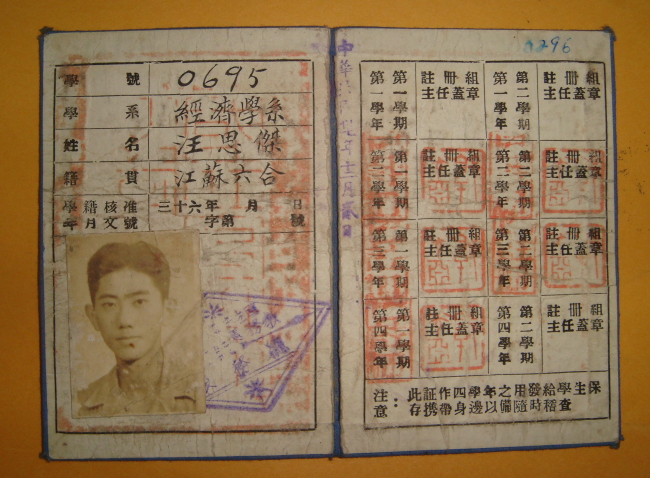 學號 0695
學系 經濟學系
姓名 汪思傑
籍貫 江蘇六合
學籍核准
年月文號
三十六年 月 日
字第 號
0296
第一學年
第一學期
註冊組
主任蓋章
第一學年
第二學期
註冊組
主任蓋章
第二學年
第一學期
註冊組
主任蓋章
第二學年
第二學期
註冊組
主任蓋章
第三學年
第一學期
註冊組
主任蓋章
第三學年
第二學期
註冊組
主任蓋章
第四學年
第一學期
註冊組
主任蓋章
第四學年
第二學期
註冊組
主任蓋章
注意：
此証作四學年之用發給學生保
存携帶身邊以備隨時稽查